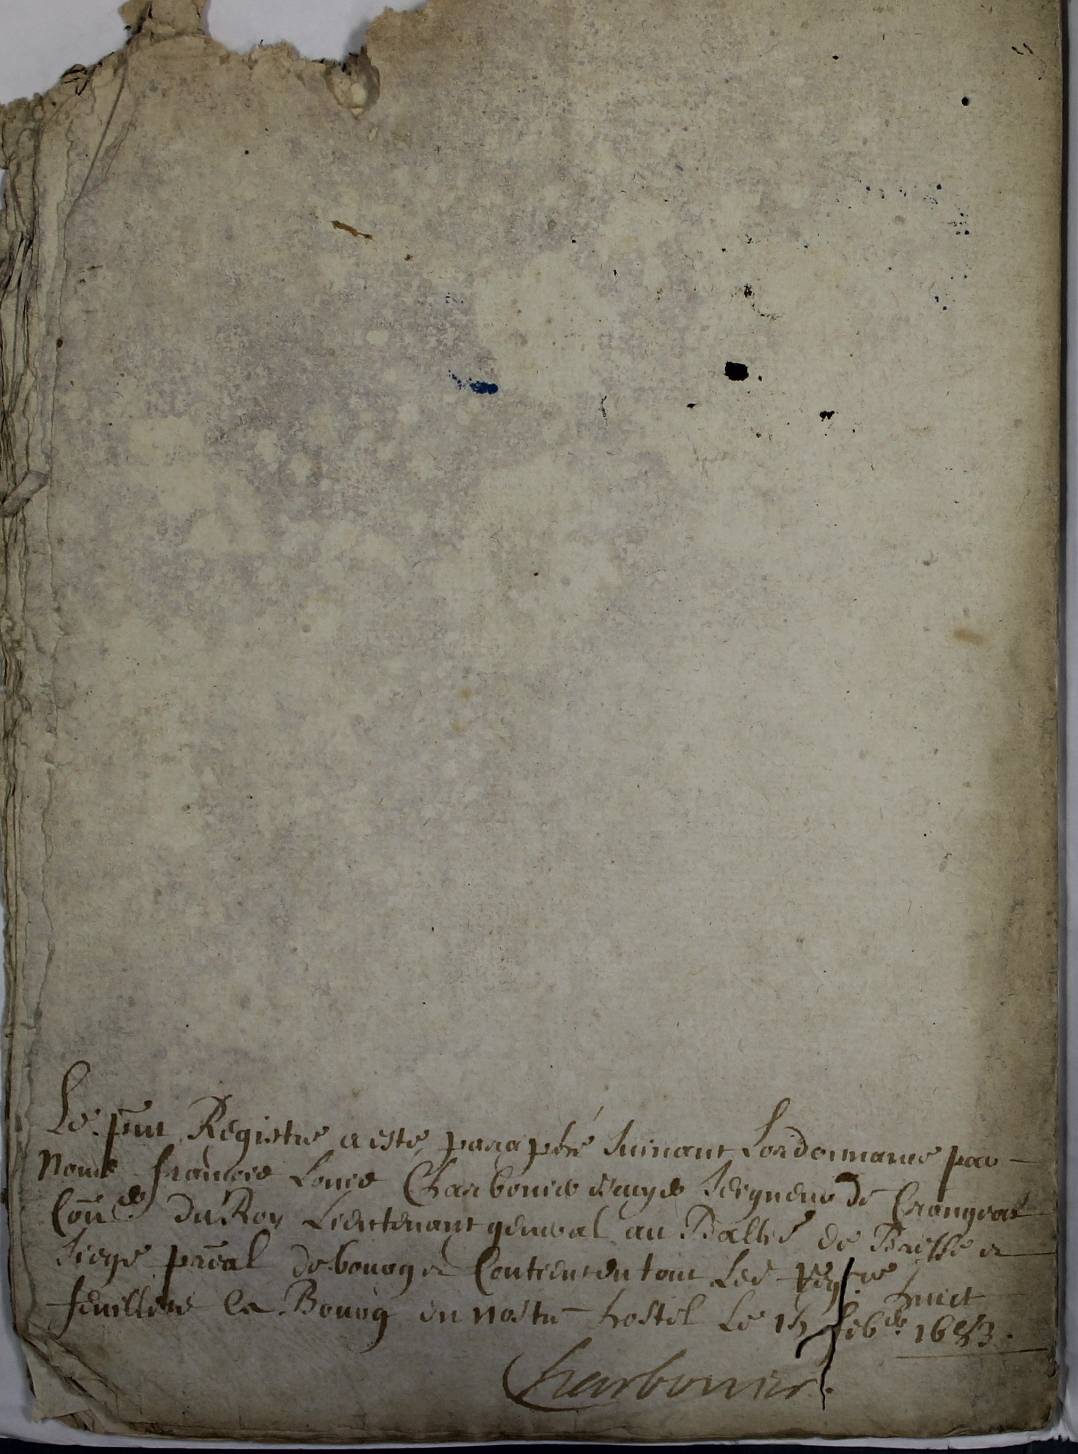 Le pnt Registre a esté paraphé suivant Lordonnance par
Nous francois Louis Charbonier escuyer Seigneur De Crangeat
Con.er Du Roy Lieutenant general au Balle de Bresse et
Siege preal de bourg et Contient en tout Led Regtre huict
feuillets ce Bourg en nostre hostel Le 15 feb.er 1683.
Charbonier.